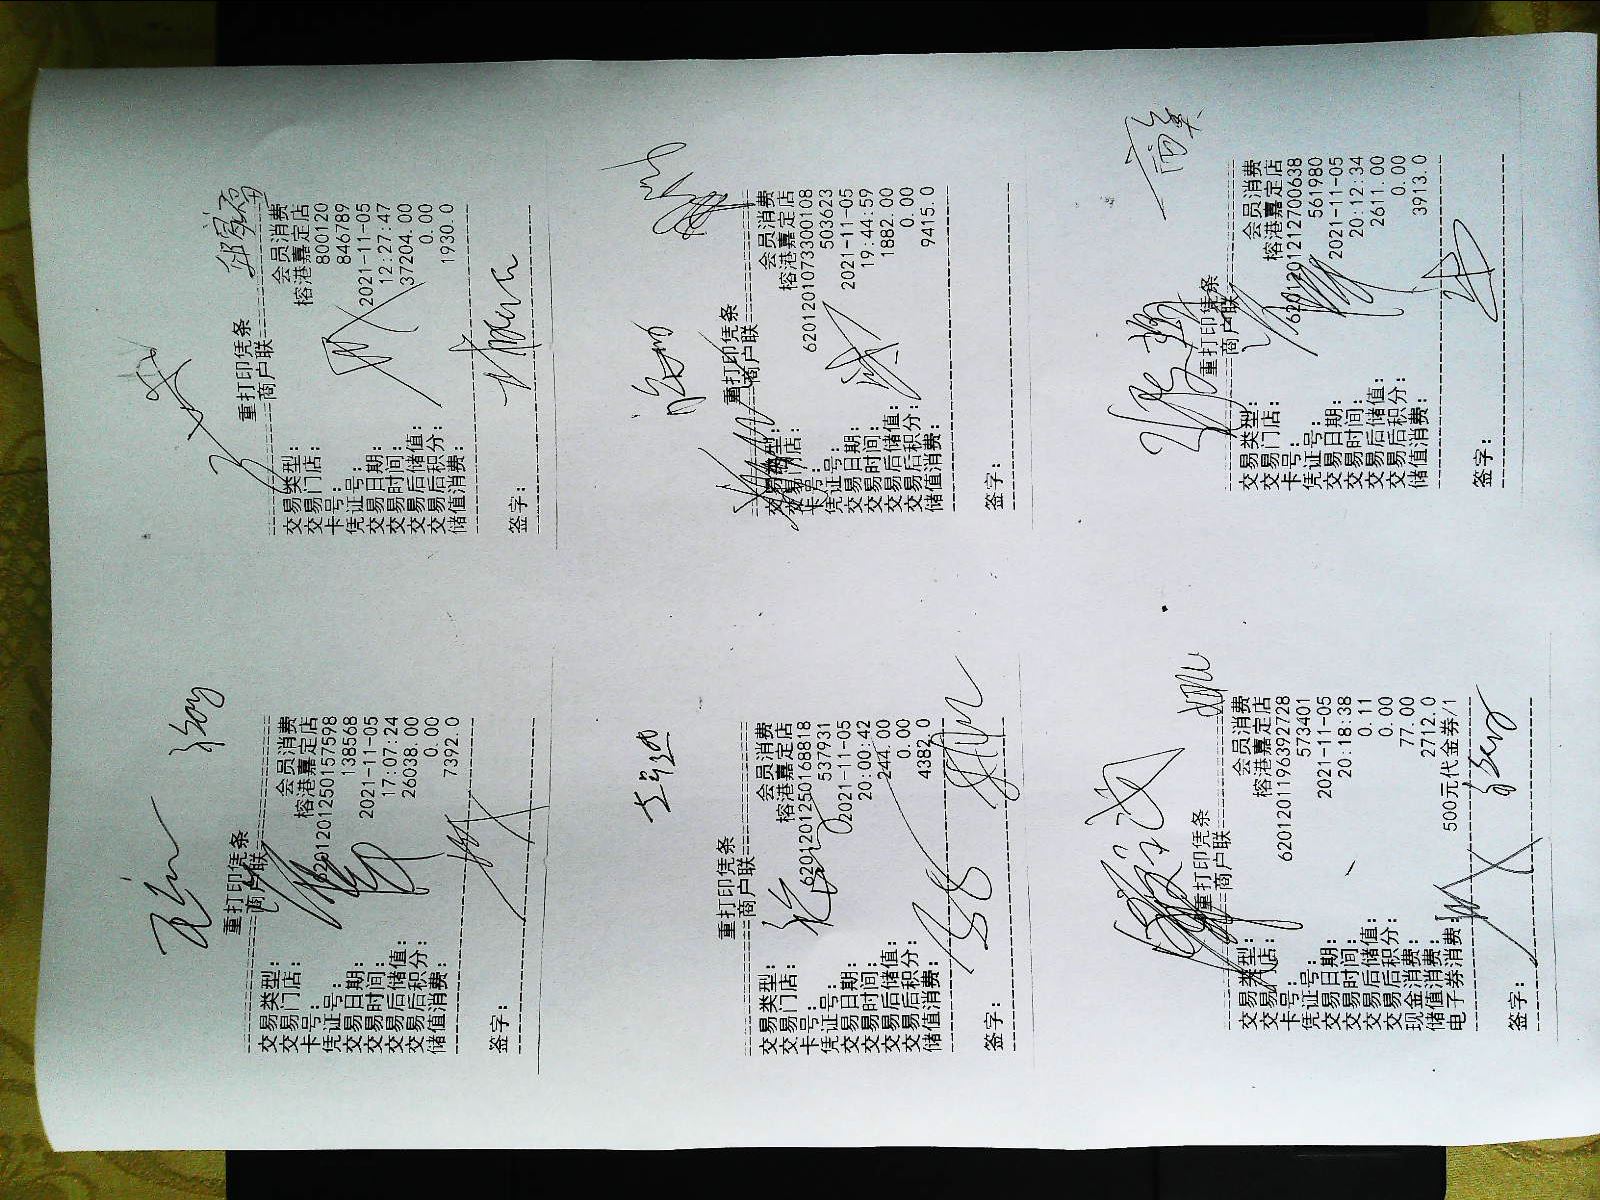 重打印凭条
商户联
交易类型: 会员消费
交易门店: 榕港嘉定店
卡号: 6201201250157598
凭证号: 138568
交易日期: 2021-11-05
交易时间: 17:07:24
交易后储值: 26038.00
交易后积分: 0.00
储值消费: 7392.0
签字:
重打印凭条
商户联
交易类型: 会员消费
交易门店: 榕港嘉定店
卡号: 800120
凭证号: 846789
交易日期: 2021-11-05
交易时间: 12:27:47
交易后储值: 37204.00
交易后积分: 0.00
储值消费: 1930.0
签字:
重打印凭条
商户联
交易类型: 会员消费
交易门店: 榕港嘉定店
卡号: 6201201250168818
凭证号: 537931
交易日期: 2021-11-05
交易时间: 20:00:42
交易后储值: 244.00
交易后积分: 0.00
储值消费: 4382.0
签字:
重打印凭条
商户联
交易类型: 会员消费
交易门店: 榕港嘉定店
卡号: 6201201073300108
凭证号: 503623
交易日期: 2021-11-05
交易时间: 19:44:59
交易后储值: 1882.00
交易后积分: 0.00
储值消费: 9415.0
签字:
重打印凭条
商户联
交易类型: 会员消费
交易门店: 榕港嘉定店
卡号: 6201201196392728
凭证号: 573401
交易日期: 2021-11-05
交易时间: 20:18:38
交易后储值: 0.11
交易后积分: 0.00
现金消费: 77.00
储值消费: 2712.0
电子券消费: 500元代金券/1
签字:
重打印凭条
商户联
交易类型: 会员消费
交易门店: 榕港嘉定店
卡号: 6201201212700638
凭证号: 561980
交易日期: 2021-11-05
交易时间: 20:12:34
交易后储值: 2611.00
交易后积分: 0.00
储值消费: 3913.0
签字: